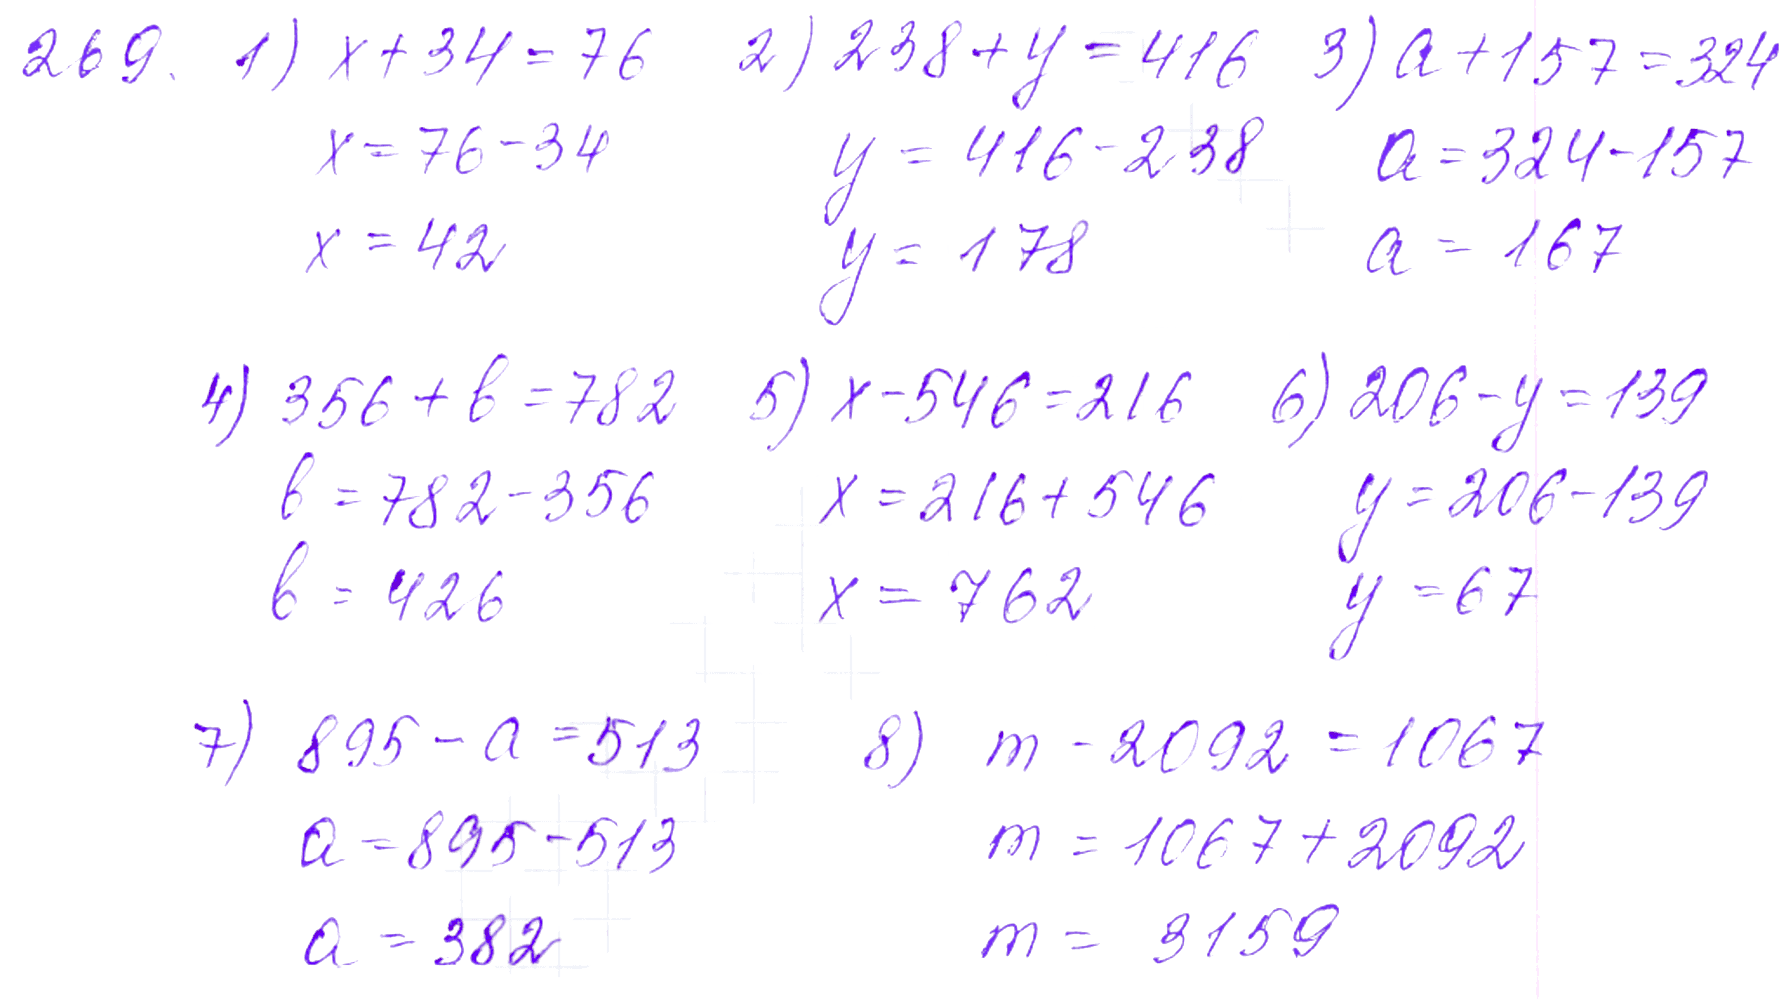 269. 1) x + 34 = 76 2) 238 + y = 416 3) a + 157 = 324
x = 76 - 34 y = 416 - 238 a = 324 - 157
x = 42 y = 178 a = 167
4) 356 + b = 782 5) x - 546 = 216 6) 206 - y = 139
b = 782 - 356 x = 216 + 546 y = 206 - 139
b = 426 x = 762 y = 67
7) 895 - a = 513 8) m - 2092 = 1067
a = 895 - 513 m = 1067 + 2092
a = 382 m = 3159